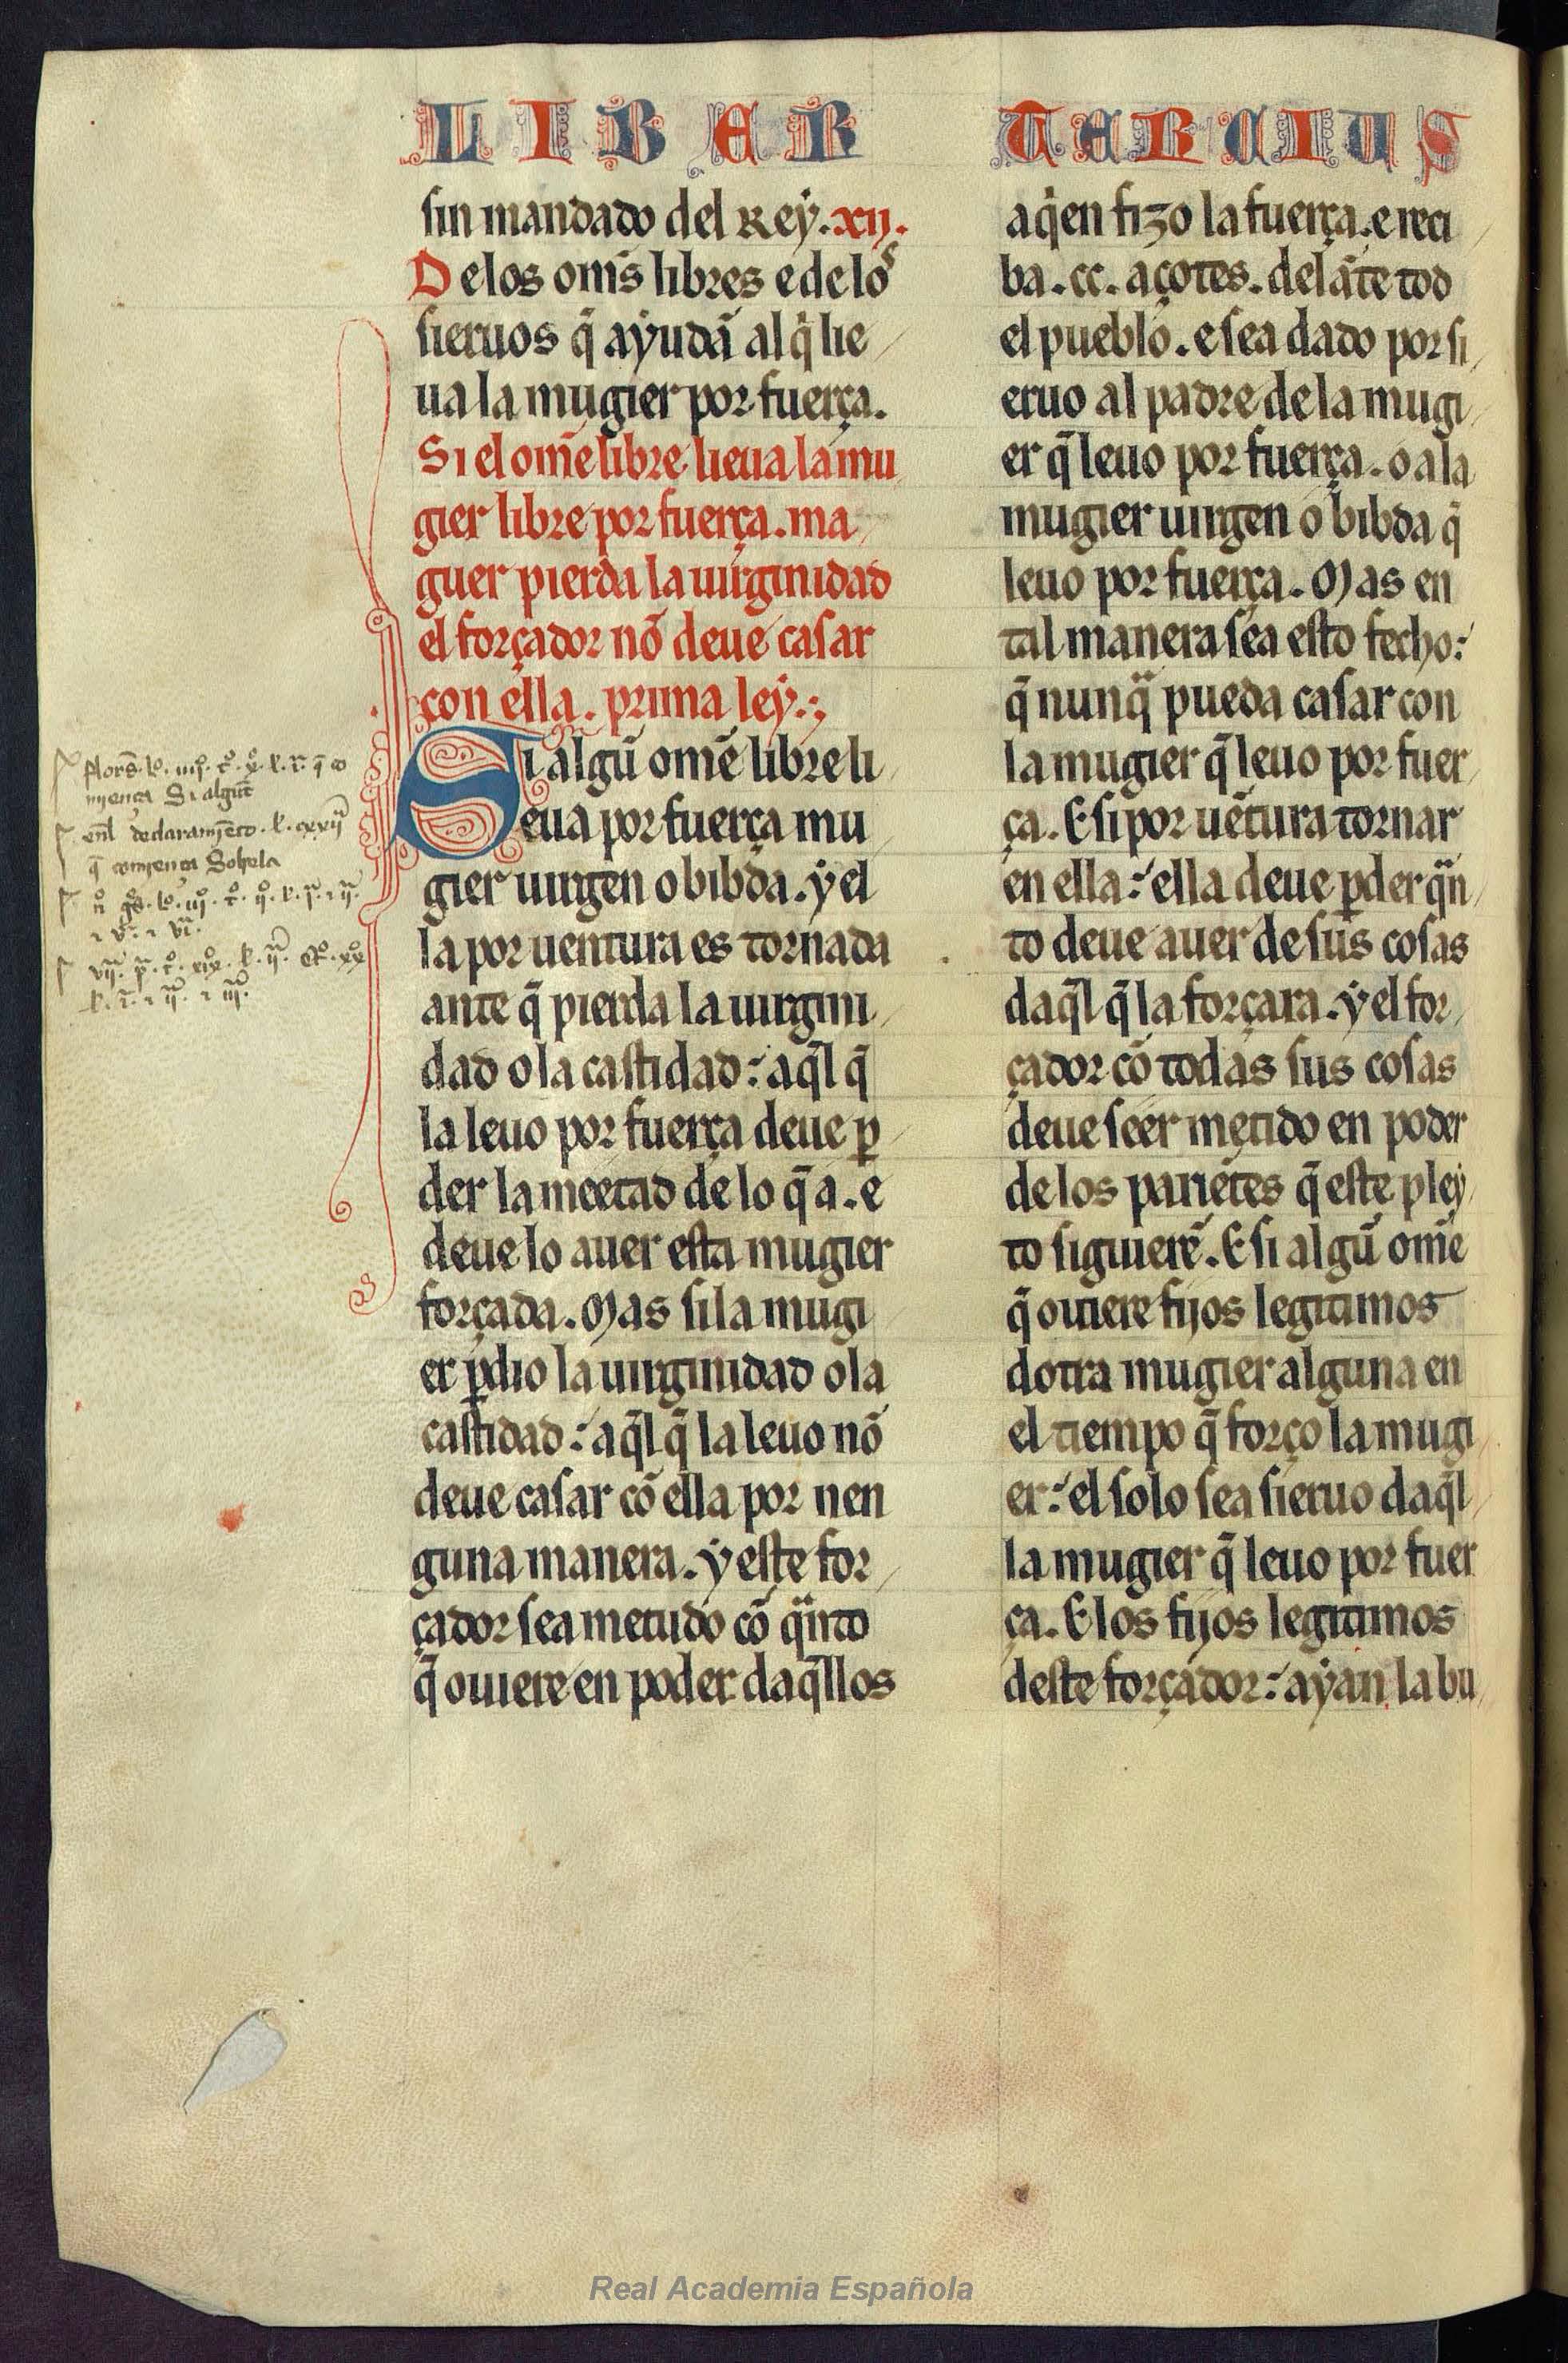 LIBER TERCIUS
sin mandado del Rey. xij.
De los om̃s libres e de los
sieruos q̃ ayudã al q̃ lie
ua la mugier por fuerça.
Si el om̃e libre lieua la mu
gier libre por fuerça. ma
guer pierda la uirginidad
el forçador nõ deue casar
con ella. prima ley.
Si algũ om̃e libre li
eua por fuerça mu
gier uirgen o bibda. y el
la por uentura es tornada
ante q̃ pierda la uirgini
dad o la castidad: aq̃l q̃
la leuo por fuerça deue ꝑ
der la meetad de lo q̃ a. e
deue lo auer esta mugier
forçada. Mas si la mugi
er ꝑdio la uirginidad o la
castidad: aq̃l q̃ la leuo nõ
deue casar cõ ella por nen
guna manera. y este for
çador sea metudo cõ qᵃnto
q̃ ouiere en poder daq̃llos
a qⁱen fizo la fuerça. e reci
ba. cc. açotes. delãte tod
el pueblo. e sea dado por si
eruo al padre de la mugi
er q̃ leuo por fuerça. o a la
mugier uirgen o bibda q̃
leuo por fuerça. Mas en
tal manera sea esto fecho:
q̃ nunqᵃ pueda casar con
la mugier q̃ leuo por fuer
ça. E si por uẽtura tornar
en ella: ella deue ꝑder qᵃn
to deue auer de sus cosas
daq̃l q̃ la forçara. y el for
çador cõ todas sus cosas
deue seer metido en poder
de los pariẽtes q̃ este pley
to siguierẽ. E si algũ om̃e
q̃ ouiere fijos legitimos
dotra mugier alguna en
el tiempo q̃ forço la mugi
er: el solo sea sieruo daq̃l
la mugier q̃ leuo por fuer
ça. E los fijos legitimos
deste forçador: ayan la bu
Real Academia Española